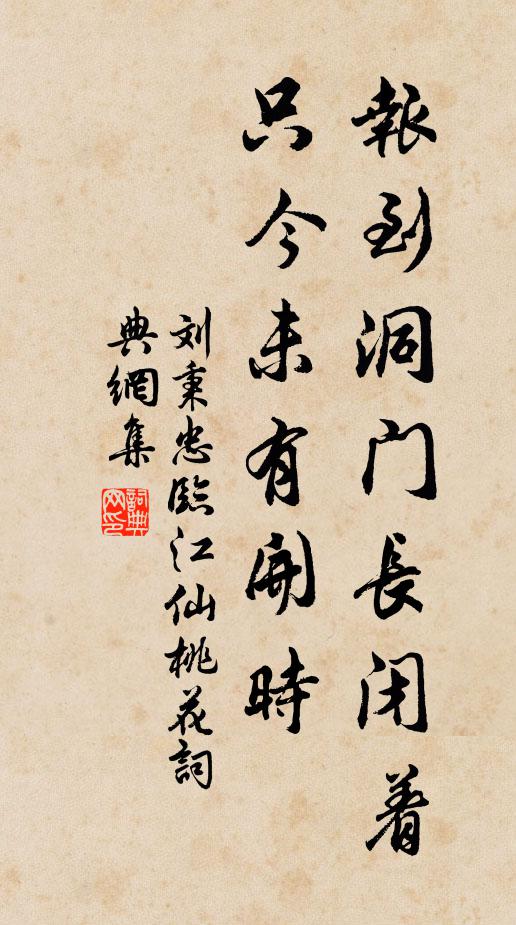 報到洞門長闭着
只今未有開時
刘秉忠臨江仙桃花詞
典網集
詞典網印